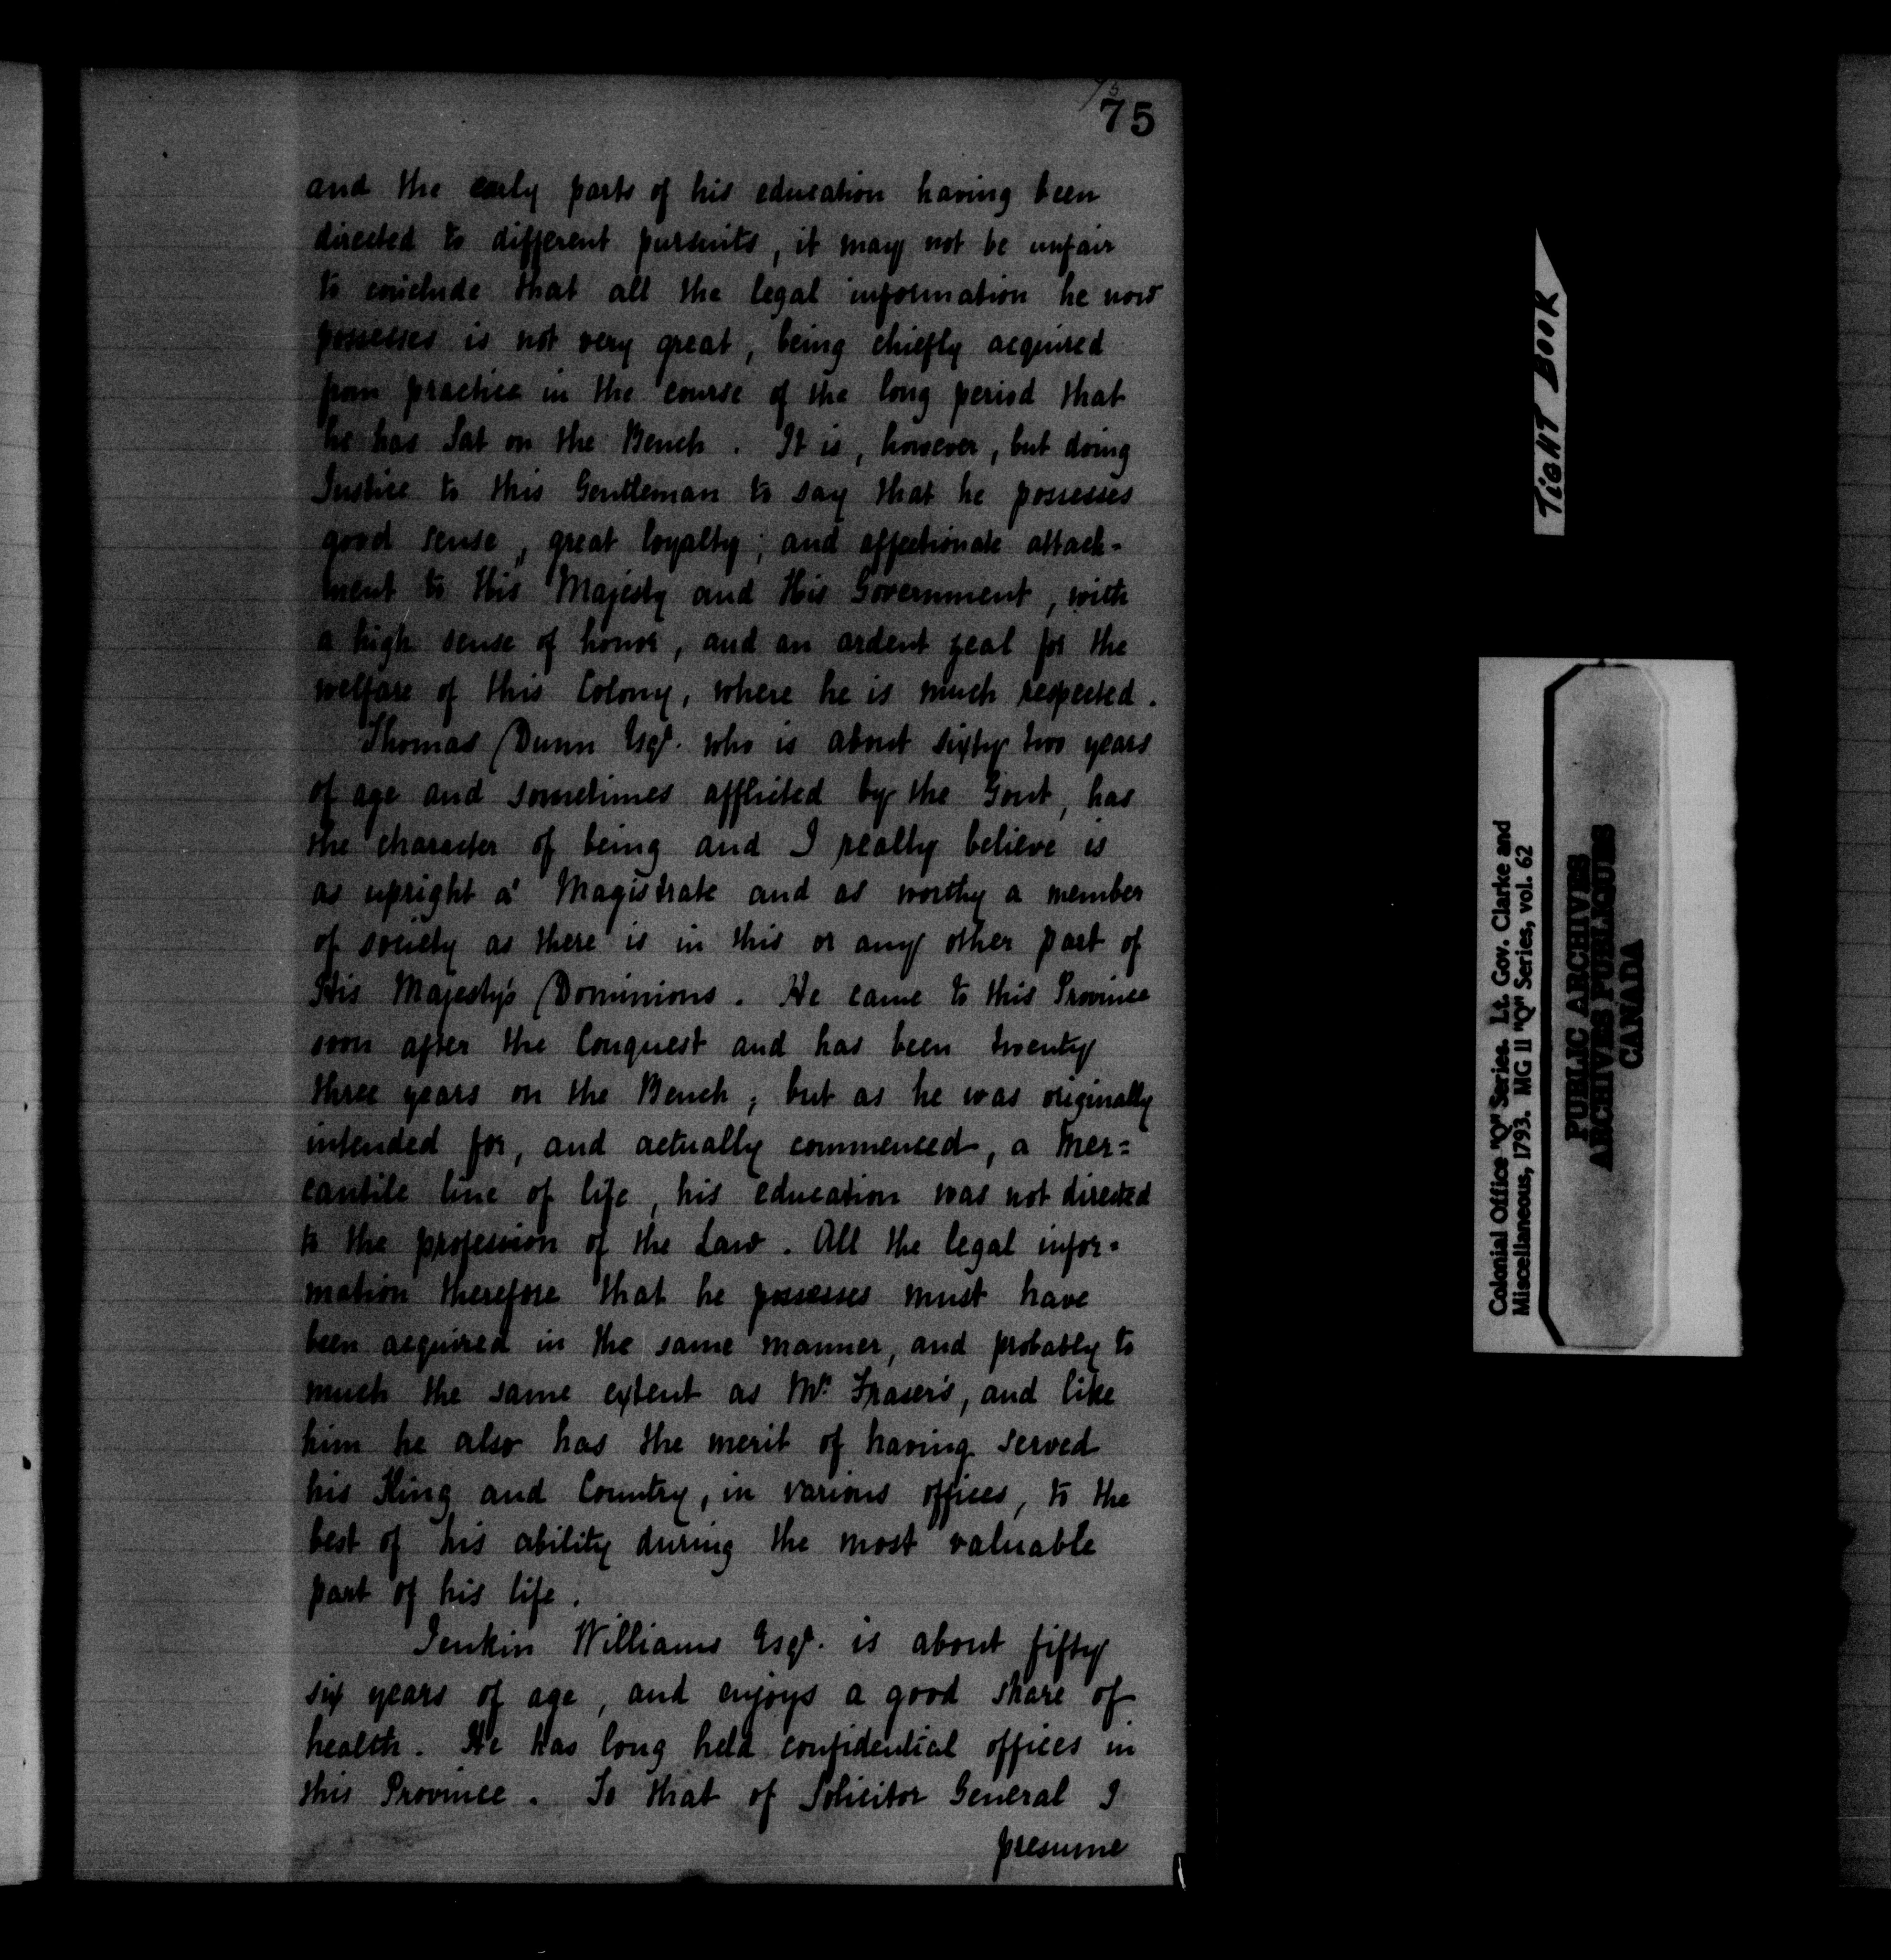 75
and the early parts of his education having been
directed to different pursuits, it may not be unfair
to conclude that all the legal information he now
possesses is not very great, being chiefly acquired
from practice in the course of the long period that
he has Sat on the Bench. It is, however, but doing
Justice to this Gentleman to say that he possesses
good sense, great loyalty, and affectionate attach-
ment to His Majesty and His Government, with
a high sense of honor, and an ardent zeal for the
welfare of this Colony, where he is much respected.
Thomas Dunn Esqr. who is about sixty two years
of age and sometimes afflicted by the Gout, has
the character of being and I really believe is
as upright a Magistrate and as worthy a member
of society as there is in this or any other part of
His Majesty's Dominions. He came to this Province
soon after the Conquest and has been twenty
three years on the Bench; but as he was originally
intended for, and actually commenced, a Mer=
cantile line of life, his education was not directed
to the profession of the Law. All the legal infor=
mation therefore that he possesses must have
been acquired in the same manner, and probably to
much the same extent as Mr. Fraser's, and like
him he also has the merit of having served
his King and Country, in various offices, to the
best of his ability during the most valuable
part of his life.
Jenkin Williams Esqr. is about fifty
six years of age, and enjoys a good share of
health. He has long held confidential offices in
this Province. To that of Solicitor General I
presume
TIGHT BOOK
Colonial Office "Q" Series. Lt. Gov. Clarke and
Miscellaneous, 1793. MG 11 "Q" Series, vol. 62
PUBLIC ARCHIVES
ARCHIVES PUBLIQUES
CANADA